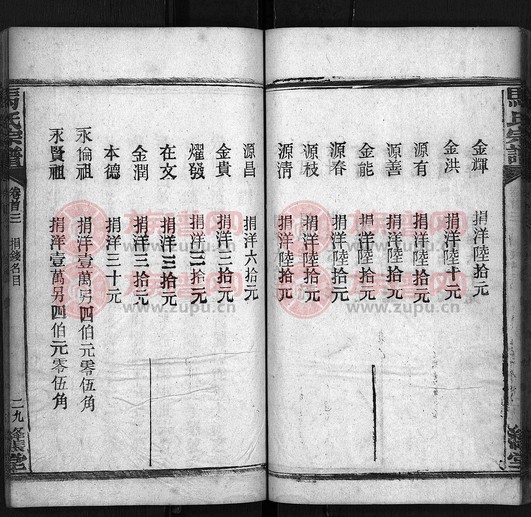 馬氏宗譜
金輝 捐洋陸拾元
金洪 捐洋陸十元
源有 捐洋陸拾元
源善 捐洋陸拾元
金能 捐洋陸拾元
源春 捐洋陸拾元
源枝 捐洋陸拾元
源清 捐洋陸拾元
源昌 捐洋六拾元
金貴 捐洋三拾元
燿發 捐洋三拾元
在文 捐洋三拾元
金潤 捐洋三拾元
本德 捐洋三十元
永倫祖 捐洋壹萬另四伯元零伍角
永賢祖 捐洋壹萬另四伯元零伍角
馬氏宗譜 卷首三 捐錢名目 二九
族譜网
www.zupu.cn
族譜网
www.zupu.cn